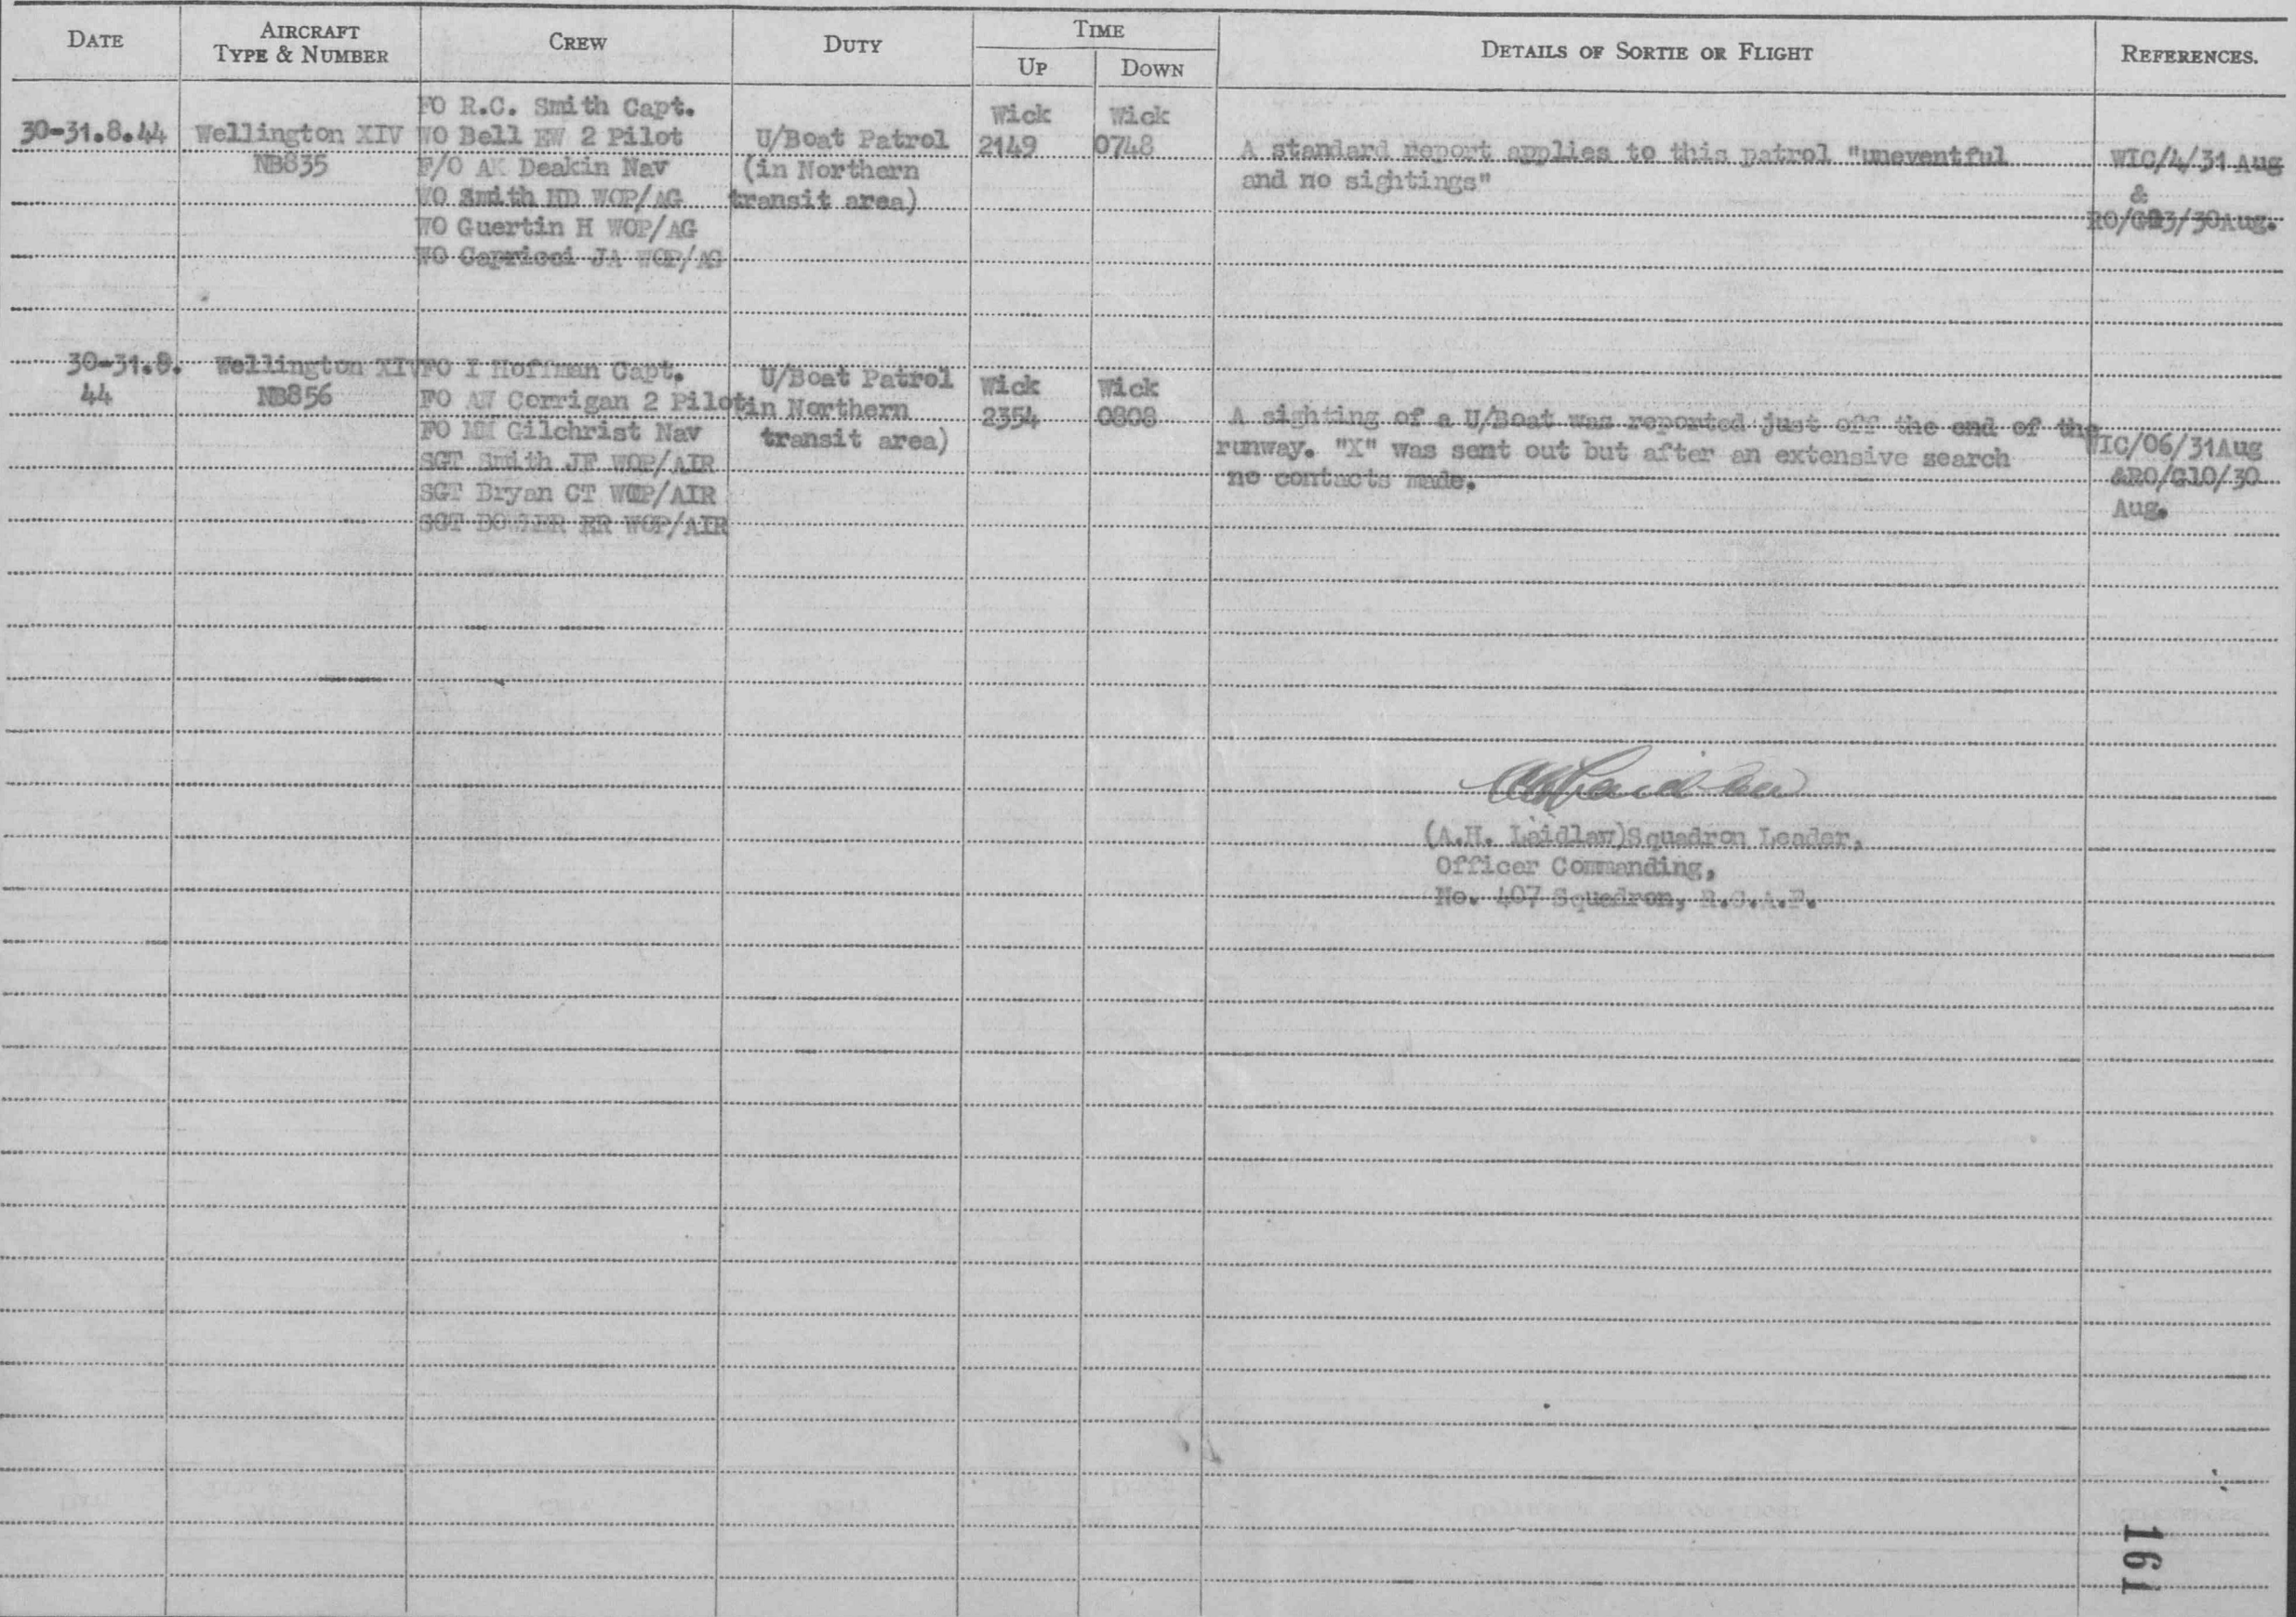 DATE
AIRCRAFT
TYPE & NUMBER
CREW
DUTY
TIME
UP
DOWN
DETAILS OF SORTIE OR FLIGHT
REFERENCES.
30-31.8.44
Wellington XIV
NB835
FO R.C. Smith Capt.
WO Bell EW 2 Pilot
F/O AK Deakin Nav
WO Smith HD WOP/AG
WO Guertin H WOP/AG
WO Capricci JA WOP/AG
U/Boat Patrol
(in Northern
transit area)
Wick
2149
Wick
0748
A standard report applies to this patrol "uneventful
and no sightings"
WIC/4/31 Aug
&
/30Aug.
30-31.8.
44
Wellington XIV
NB856
FO I Hoffman Capt.
FO AW Corrigan 2 Pilot
FO MM Gilchrist Nav
SGT Smith JF WOP/AIR
SGT Bryan CT WOP/AIR
SGT BOWLER RR WOP/AIR
U/Boat Patrol
in Northern
transit area)
Wick
2354
Wick
0808
A sighting of a U/Boat was reported just off the end of the
runway. "X" was sent out but after an extensive search
no contacts made.
WIC/06/31Aug
&RO/G10/30
Aug.
(A.H. Laidlaw)Squadron Leader,
Officer Commanding,
No. 407 Squadron, R.C.A.F.
161